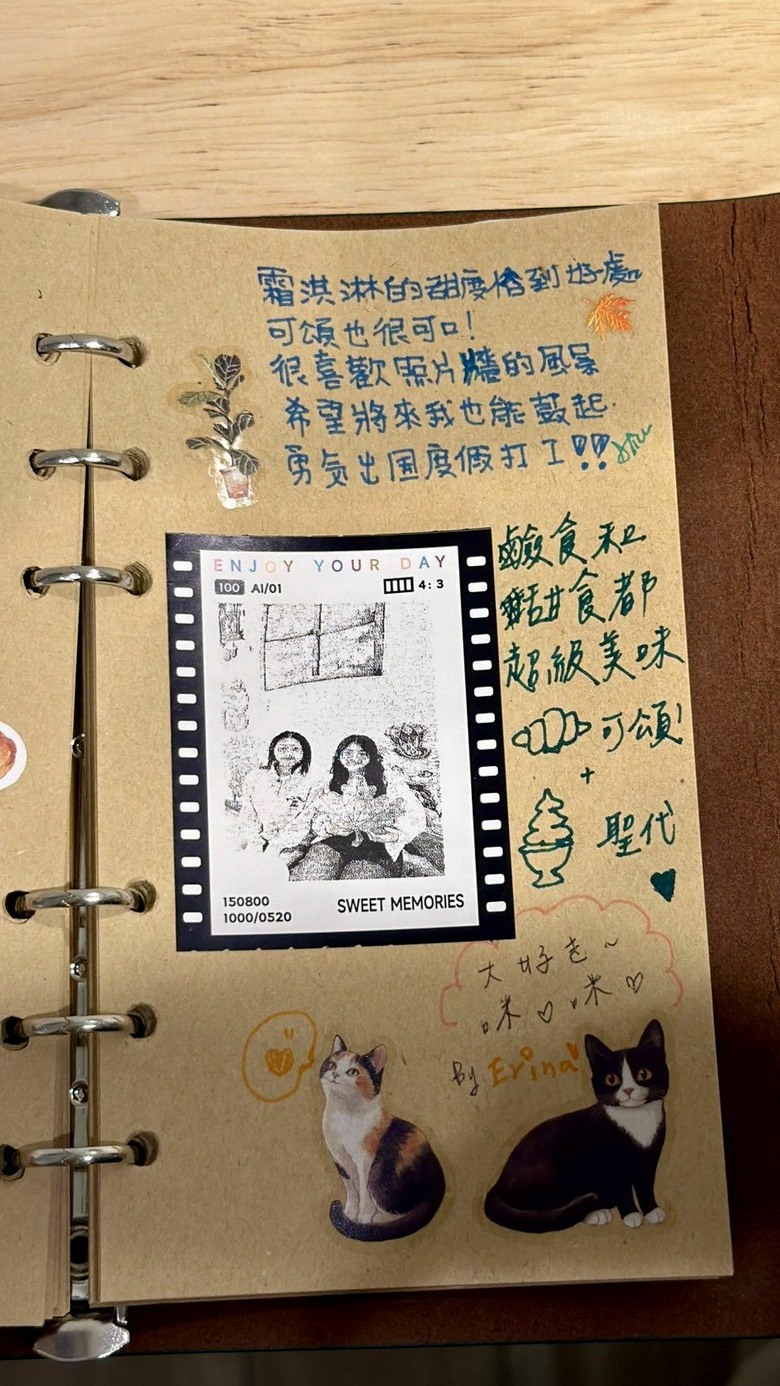 霜淇淋的甜度恰到好處
可頌也很可口!
很喜歡照片牆的風景
希望將來我也能鼓起
勇気出国度假打工!!
ENJOY YOUR DAY
100 AI/01 4:3
150800
1000/0520
SWEET MEMORIES
鹹食和
甜食都
超級美味
可頌!
+
聖代
大好き~
咪♡咪♡
By Erina